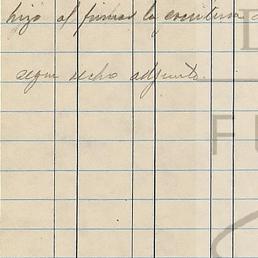 hizo al firmar la escritura
segun recho adjunto.